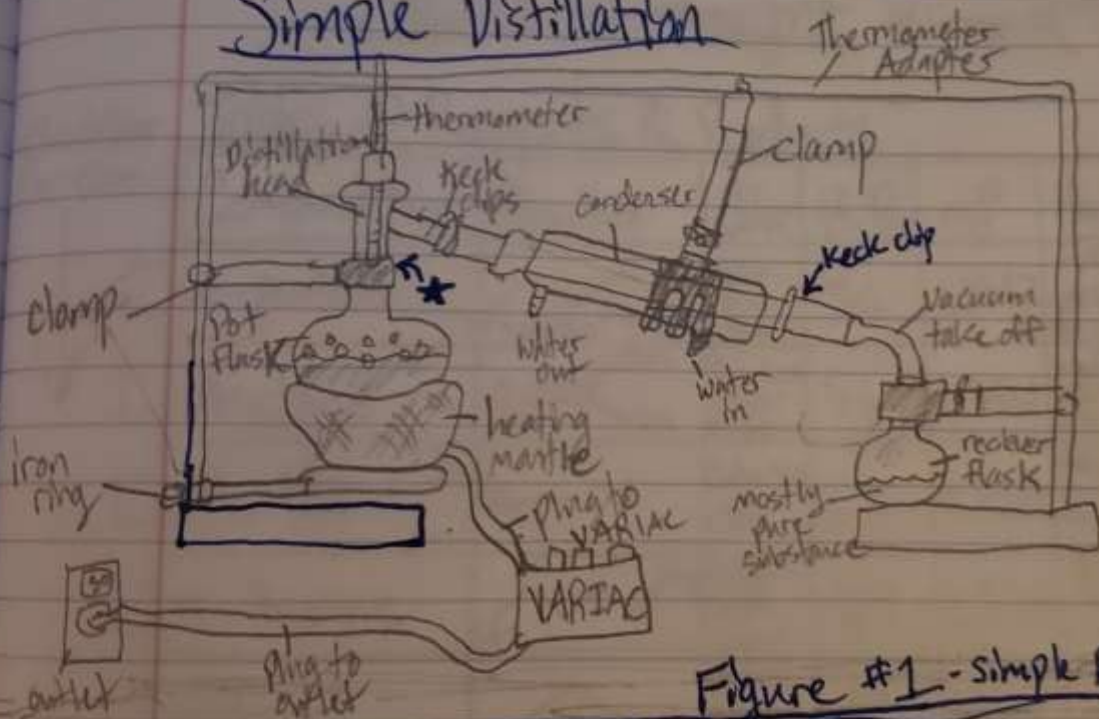 Simple Distillation
Thermometer
Adapter
thermometer
Distillation
head
Keck
clips
condenser
clamp
Keck clip
clamp
Pot
flask
water
out
water
in
vacuum
take off
heating
mantle
reciever
flask
iron
ring
mostly
pure
substance
plug to
VARIAC
VARIAC
plug to
outlet
outlet
Figure #1 - simple